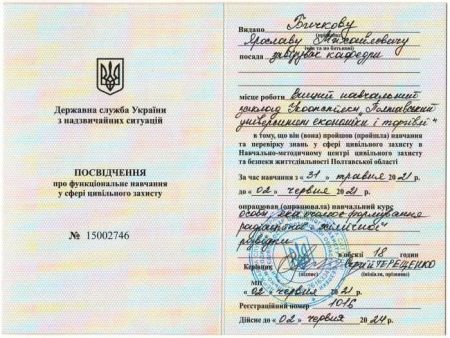 Державна служба України
з надзвичайних ситуацій
ПОСВІДЧЕННЯ
про функціональне навчання
у сфері цивільного захисту
№ 15002746
Видано Бичкову
(прізвище)
Ярославу Михайловичу
(ім'я та по батькові)
посада завідувач кафедри
місце роботи Вищий навчальний
заклад Укоопспілки „Полтавський
університет економіки і торгівлі"
в тому, що він (вона) пройшов (пройшла) навчання
та перевірку знань у сфері цивільного захисту в
Навчально-методичному центрі цивільного захисту
та безпеки життєдіяльності Полтавської області
За час навчання з «31» травня 2021
до «02» червня 2021
опрацював (опрацювала) навчальний курс
особи, яка очолює формування
радіаційної хімічної
розвідки
в обсязі 18 годин
Керівник Сергій ТЕРЕЩЕНКО
(підпис) (ініціали, прізвище)
МП
«02» червня 2021
Реєстраційний номер 1016
Дійсне до «02» червня 2024 р.